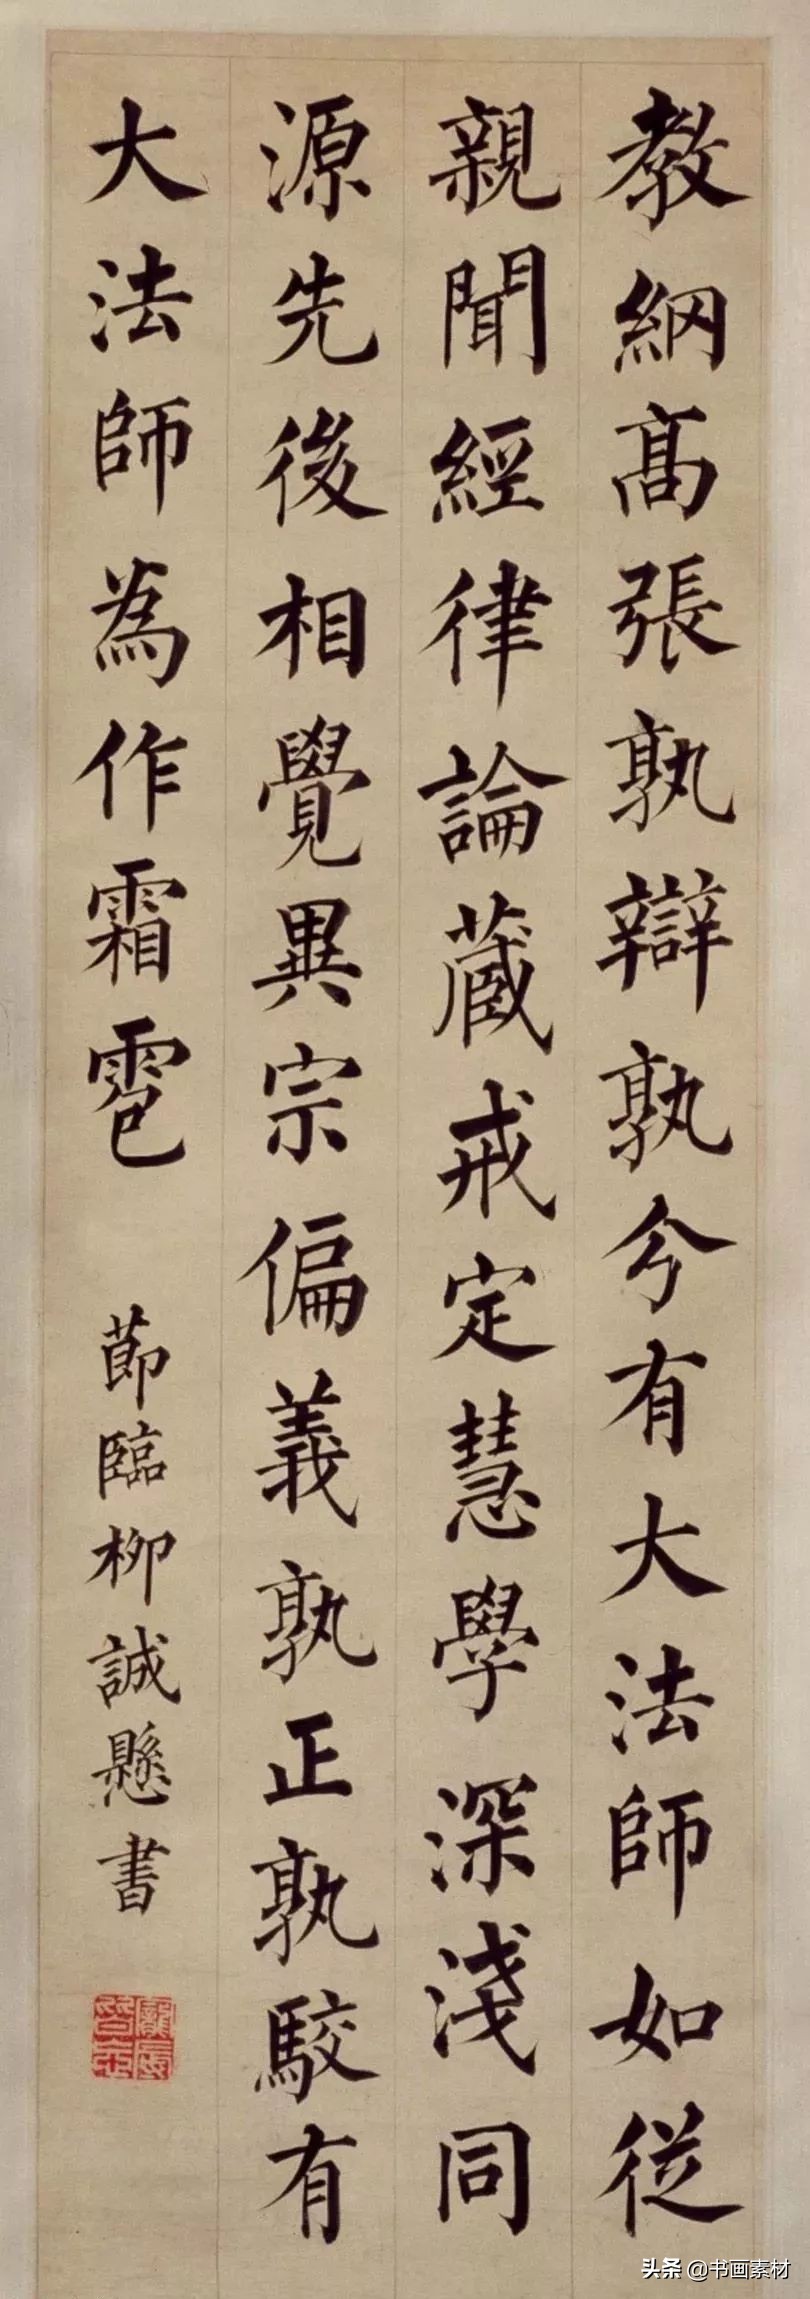 教網髙張孰辯孰兮有大法師如從
親聞經律論蔵戒定慧學深淺同
源先後相覺異宗偏義孰正孰駮有
大法師為作霜雹
莭臨柳誠懸書
头条 @书画素材